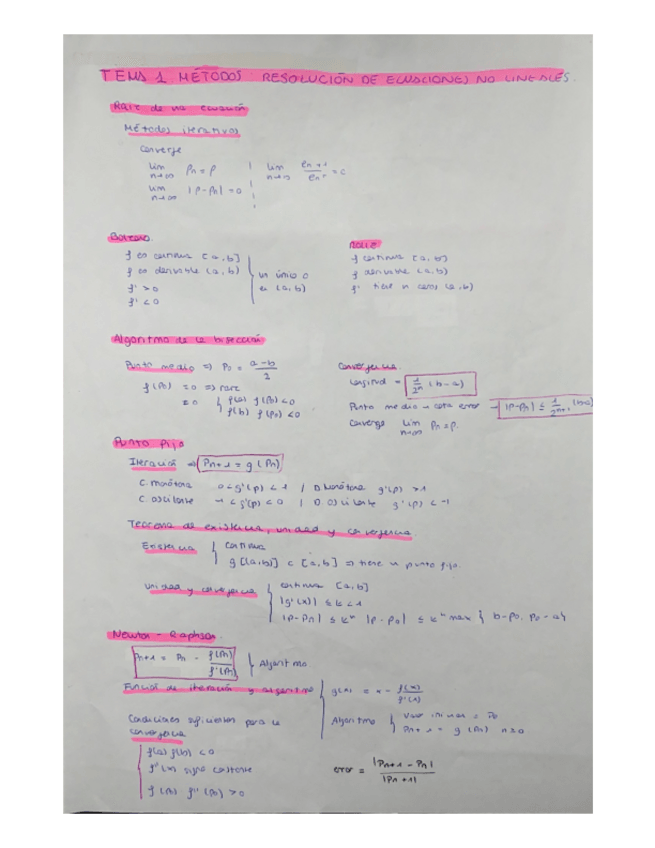 TEMA 1 MÉTODOS RESOLUCIÓN DE ECUACIONES NO LINEALES.
Raíz de una ecuación
Métodos iterativos
Converge
lim n→∞ Pn = P | lim n→∞ en+1 / en^r = c
lim n→∞ |P-Pn| = 0
Bolzano
f es continua [a,b]
f es derivable (a,b)
f' > 0
f' < 0
un único 0
en (a,b)
Rolle
f continua [a,b]
f derivable (a,b)
f' tiene n ceros (a,b)
Algoritmo de la bisección
Punto medio ⇒ P0 = a-b / 2
f(P0) = 0 ⇒ raíz
= 0 { f(a) f(P0) < 0
f(b) f(P0) < 0
Convergencia
Longitud = 1/2^n (b-a)
Punto medio → cota error → |P-Pn| ≤ 1/2^n+1 (b-a)
Converge lim n→∞ Pn = P.
Punto Fijo
Iteración ⇒ Pn+1 = g(Pn)
C. monótona 0 < g'(p) < 1 / D. Monótona g'(p) > 1
C. oscilante -1 < g'(p) < 0 / D. Oscilante g'(p) < -1
Teorema de existencia, unidad y convergencia
Existencia { continua
g([a,b]) ⊂ [a,b] ⇒ tiene un punto fijo.
Unidad y convergencia { continua [a,b]
|g'(x)| ≤ k < 1
|P-Pn| ≤ k^n |P-P0| ≤ k^n max { b-P0, P0-a }
Newton - Raphson
Pn+1 = Pn - f(Pn) / f'(Pn) } Algoritmo
Función de iteración y algoritmo { g(x) = x - f(x) / f'(x)
Algoritmo { Valor inicial = P0
Pn+1 = g(Pn) n≥0
Condiciones suficientes para la
convergencia
f(a) f(b) < 0
f''(x) signo constante
f(P0) f''(P0) > 0
error = |Pn+1 - Pn| / |Pn+1|